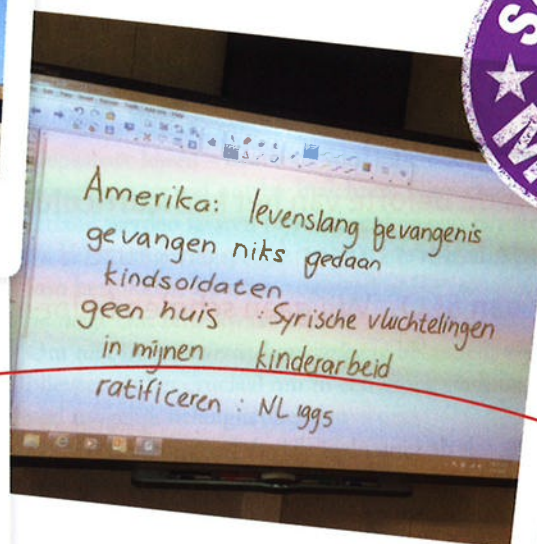 Amerika: levenslang gevangenis
gevangen niks gedaan
kindsoldaten
geen huis : Syrische vluchtelingen
in mijnen kinderarbeid
ratificeren : NL 1995